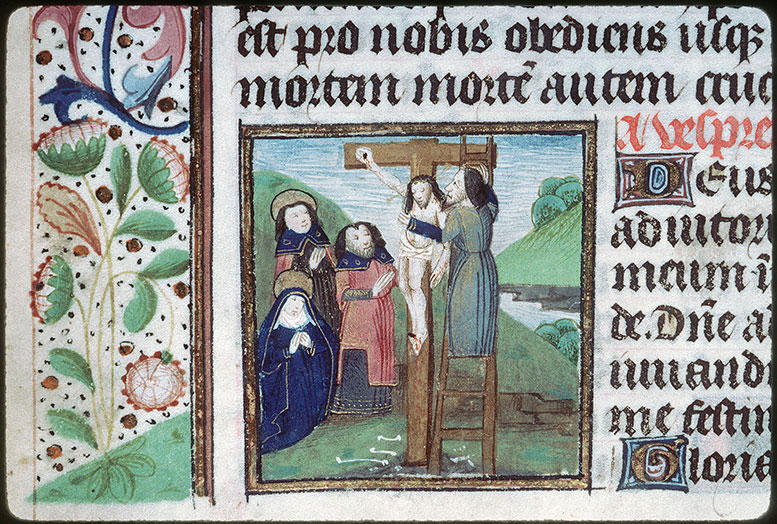 est pro nobis obediens usq
mortem morte᷉ autem cruc
A vespre
Deus
adiutori
meum ĩ
de. Dñe a
iuuand
me festin
Gloria